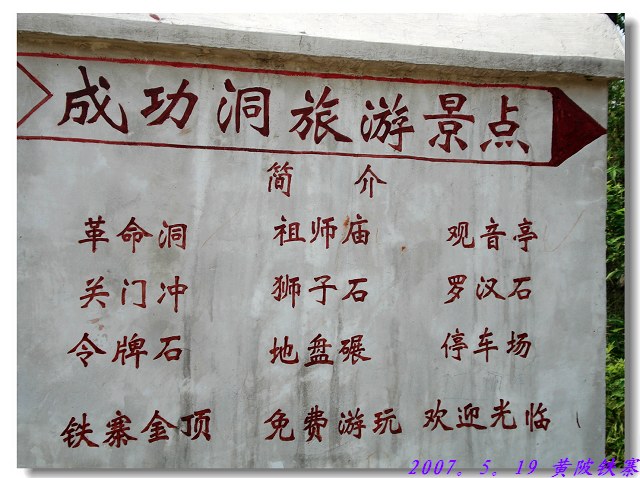 成功洞旅游景点
简 介
革命洞 祖师庙 观音亭
关门冲 狮子石 罗汉石
令牌石 地盘碾 停车场
铁寨金顶 免费游玩 欢迎光临
2007。5。19 黄陂铁寨